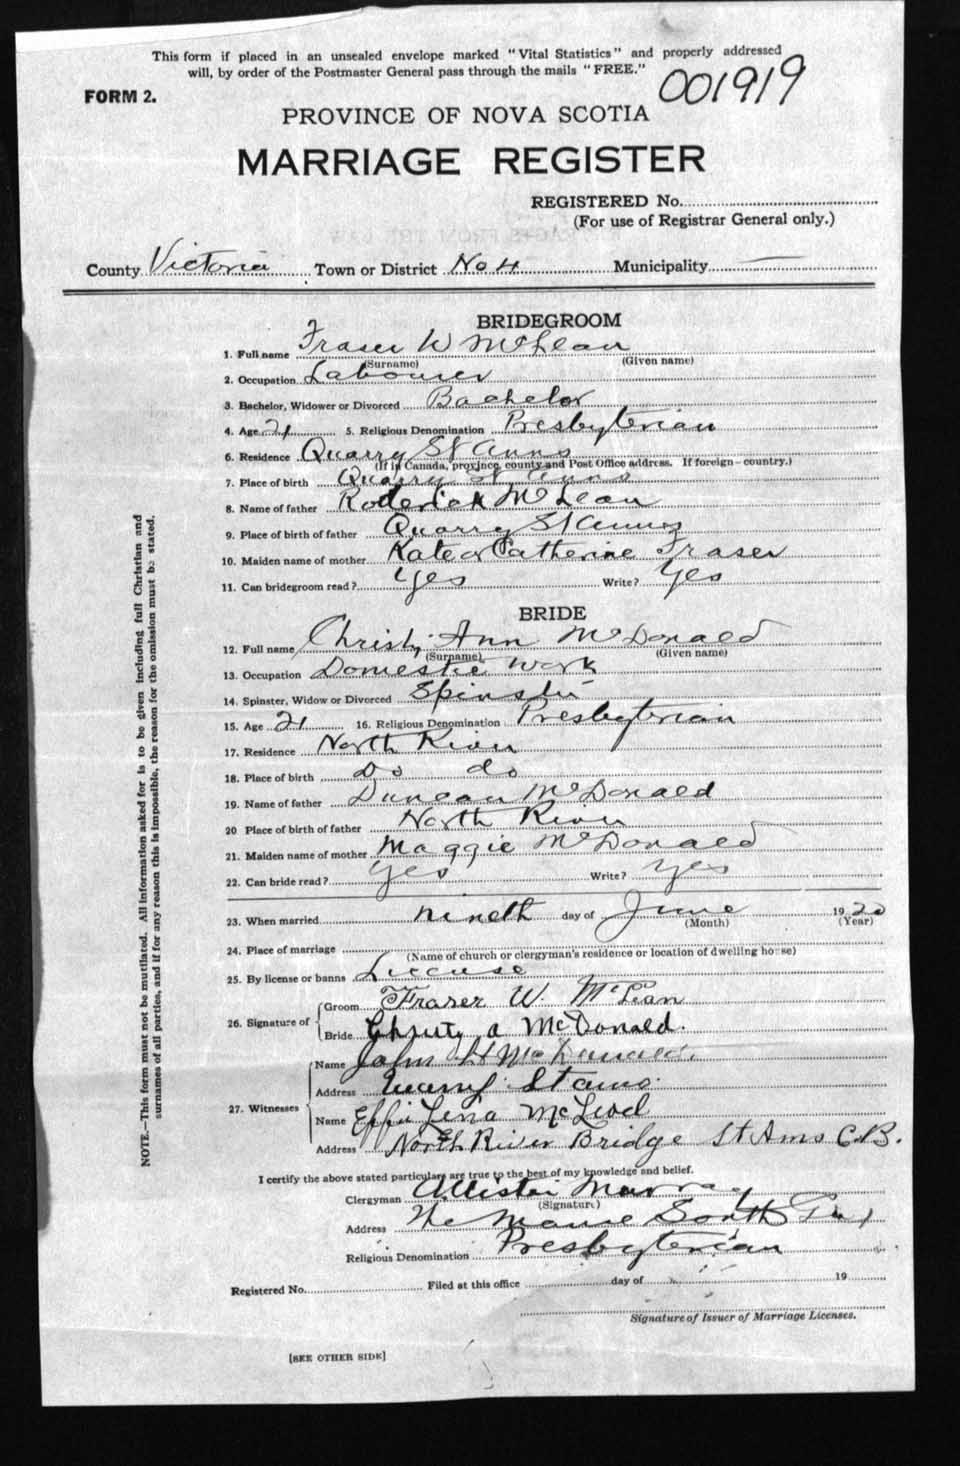 This form if placed in an unsealed envelope marked "Vital Statistics" and properly addressed
will, by order of the Postmaster General pass through the mails "FREE."
001919
FORM 2.
PROVINCE OF NOVA SCOTIA
MARRIAGE REGISTER
REGISTERED No.
(For use of Registrar General only.)
County Victoria Town or District No 4 Municipality —
BRIDEGROOM
1. Full name Fraser W McLean
(Surname) (Given name)
2. Occupation Labourer
3. Bachelor, Widower or Divorced Bachelor
4. Age 21 5. Religious Denomination Presbyterian
6. Residence Quarry St Anns
(If in Canada, province, county and Post Office address. If foreign—country.)
7. Place of birth Quarry St Anns
8. Name of father Roderick McLean
9. Place of birth of father Quarry St Annes
10. Maiden name of mother Kate or Catherine Fraser
11. Can bridegroom read? Yes Write? Yes
BRIDE
12. Full name Christy Ann McDonald
(Surname) (Given name)
13. Occupation Domestic work
14. Spinster, Widow or Divorced Spinster
15. Age 21 16. Religious Denomination Presbyterian
17. Residence North River
18. Place of birth Do do
19. Name of father Duncan McDonald
20 Place of birth of father North River
21. Maiden name of mother Maggie McDonald
22. Can bride read? Yes Write? Yes
23. When married nineth day of June 1920
(Month) (Year)
24. Place of marriage
(Name of church or clergyman's residence or location of dwelling house)
25. By license or banns License
26. Signature of Groom Fraser W. McLean
Bride Christy A McDonald.
27. Witnesses Name John H McDonald.
Address Quarry St Anns.
Name Effie Lena McLeod
Address North River Bridge St Anns C.B.
I certify the above stated particulars are true to the best of my knowledge and belief.
Clergyman Allister Murray
(Signature)
Address The Manse South
Religious Denomination Presbyterian
Registered No. Filed at this office day of 19
Signature of Issuer of Marriage Licenses.
[SEE OTHER SIDE]
NOTE.—This form must not be mutilated. All information asked for is to be given including full Christian and
surnames of all parties, and if for any reason this is impossible, the reason for the omission must be stated.